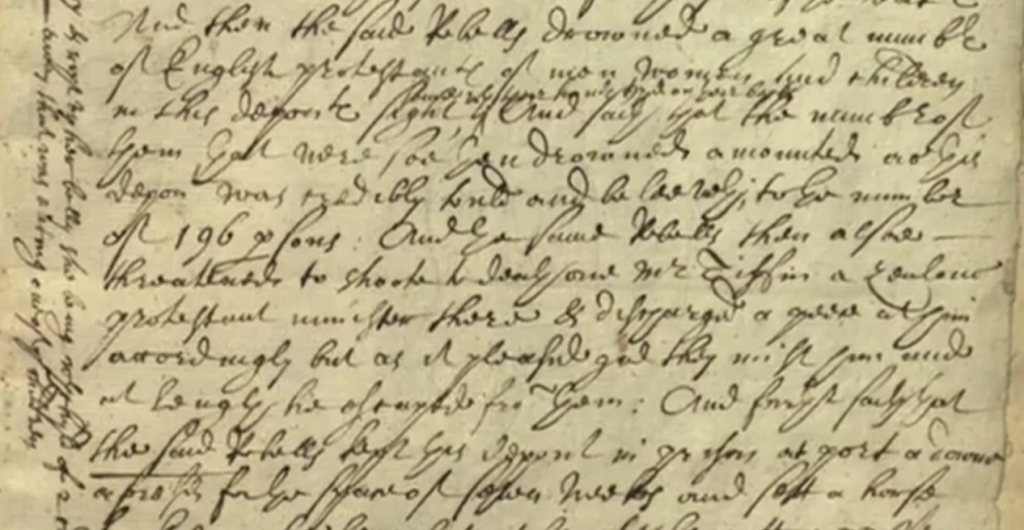 And then the said Rebells drowned a great numbr
of English protestants of men women and children
in this deponts sight And saith that the numbr of
them that were soe then drowned amounted as this
depont was credibly tould and beleeveth, to the number
of 196 psons: And the same Rebells then alsoe —
threatened to shoote to death one Mr Tiffin a zealous
protestant minister there & discharged a peece at him
accordingly but as it pleased god they mist him and
at length he escaped fro them: And further saith that
the said Rebells kept this depont in prison at port a downe
aforesaid for the space of seven weeks and sett a horse